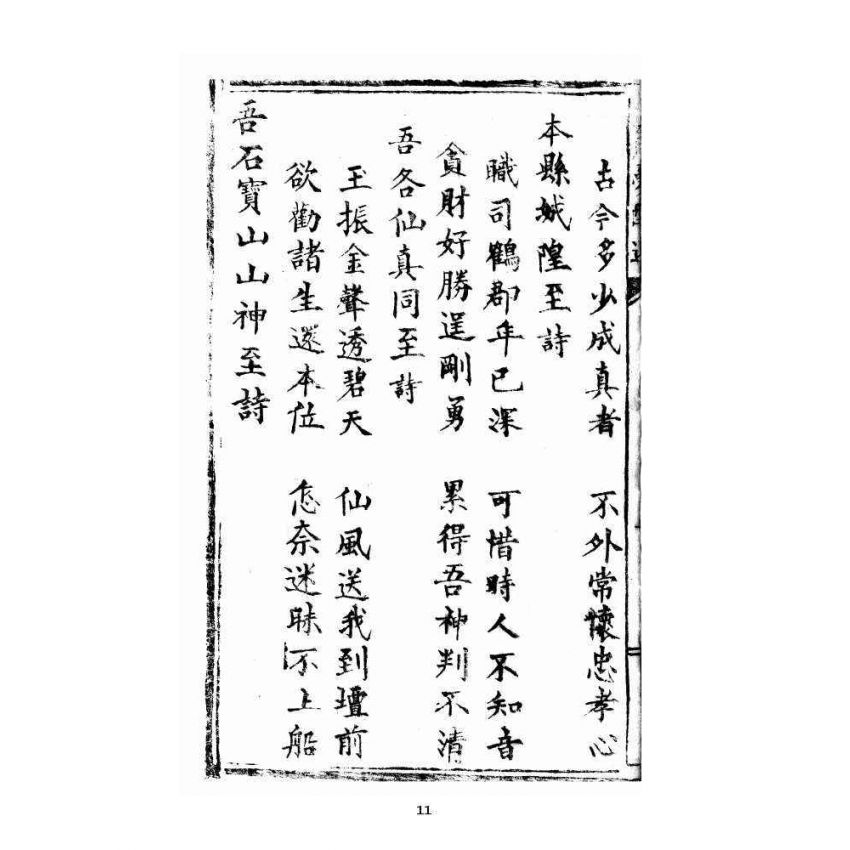 古今多少成真者　不外常懷忠孝心
本縣城隍至詩
職司鶴郡年已深　可惜時人不知音
貪財好勝逞剛勇　累得吾神判不清
吾各仙真同至詩
玉振金聲透碧天　仙風送我到壇前
欲勸諸生還本位　怎奈迷昧不上船
吾石寶山山神至詩
11